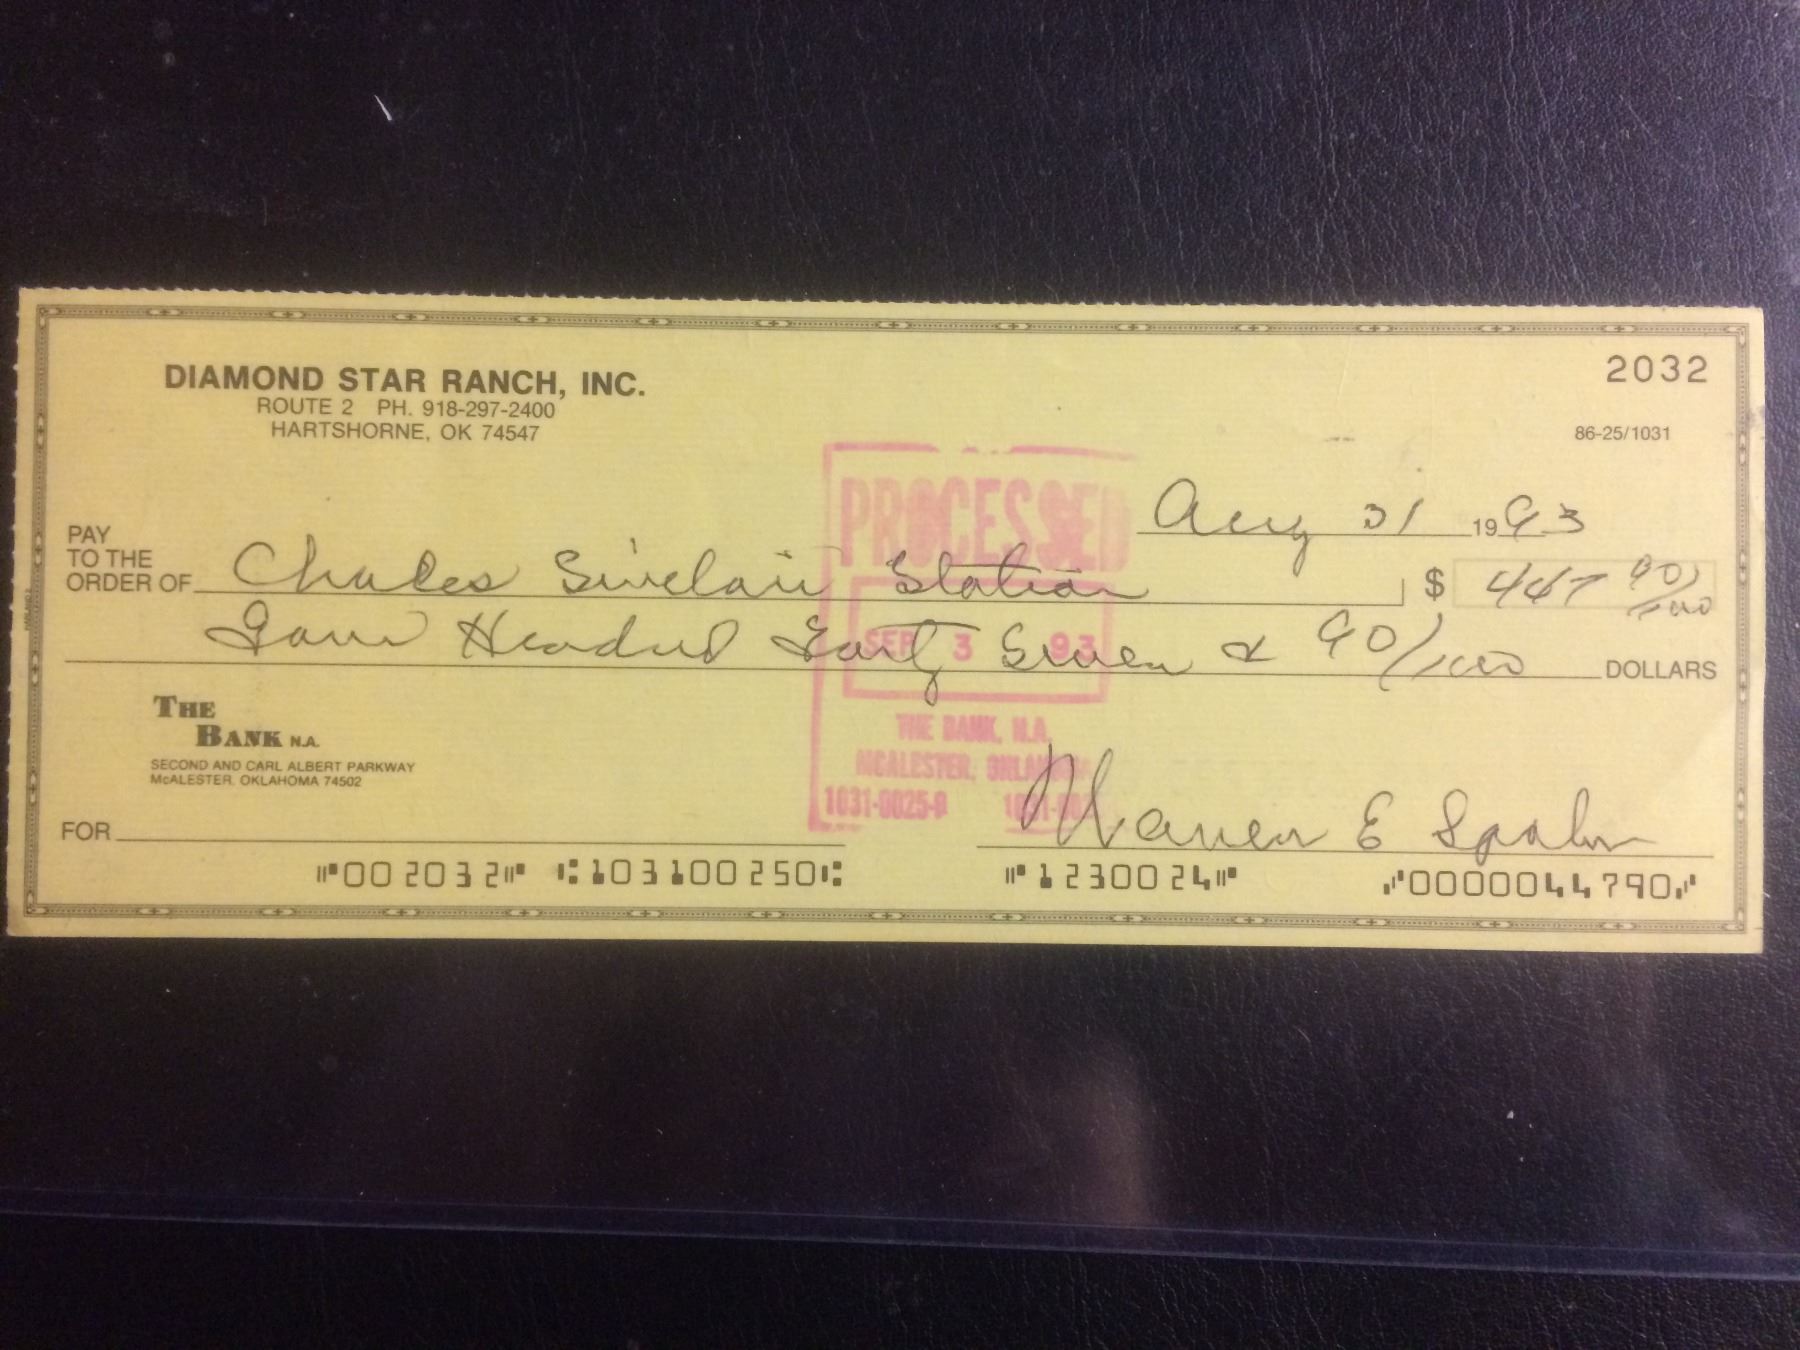 DIAMOND STAR RANCH, INC.
ROUTE 2 PH. 918-297-2400
HARTSHORNE, OK 74547
2032
86-25/1031
PROCESSED
Aug 31 1993
PAY
TO THE
ORDER OF Charles Sinclair Station $ 447 90/100
Four Hundred Forty Seven & 90/100 DOLLARS
SEP 3 93
THE
BANK N.A.
SECOND AND CARL ALBERT PARKWAY
McALESTER, OKLAHOMA 74502
THE BANK, N.A.
MCALESTER, OKLAHOMA
1031-0025-0
FOR
Warren E Spahn
⑈002032⑈ ⑆103100250⑆ ⑈1230024⑈ ⑇0000044790⑇